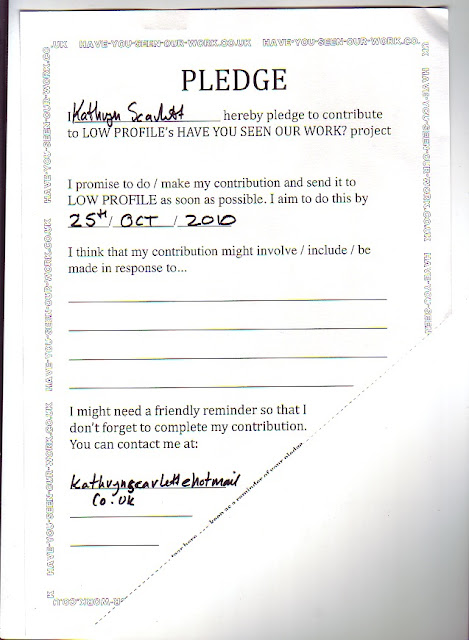 .UK HAVE-YOU-SEEN-OUR-WORK.CO.UK HAVE-YOU-SEEN-OUR-WORK.CO.
PLEDGE
I Kathryn Scarlett hereby pledge to contribute
to LOW PROFILE's HAVE YOU SEEN OUR WORK? project
I promise to do / make my contribution and send it to
LOW PROFILE as soon as possible. I aim to do this by
25th / OCT / 2010
I think that my contribution might involve / include / be
made in response to...
I might need a friendly reminder so that I
don't forget to complete my contribution.
You can contact me at:
kathrynscarlett@hotmail
co.uk
tear here --- keep as a reminder of your pledge
HAVE-YOU-SEEN-OUR-WORK.CO.UK HAVE-YOU-SEEN-OUR-WORK.CO.UK HAVE-YOU-SEEN-OUR-WORK.CO
UK HAVE-YOU-SEEN-OUR-WORK.CO.UK HAVE-YOU-SEEN